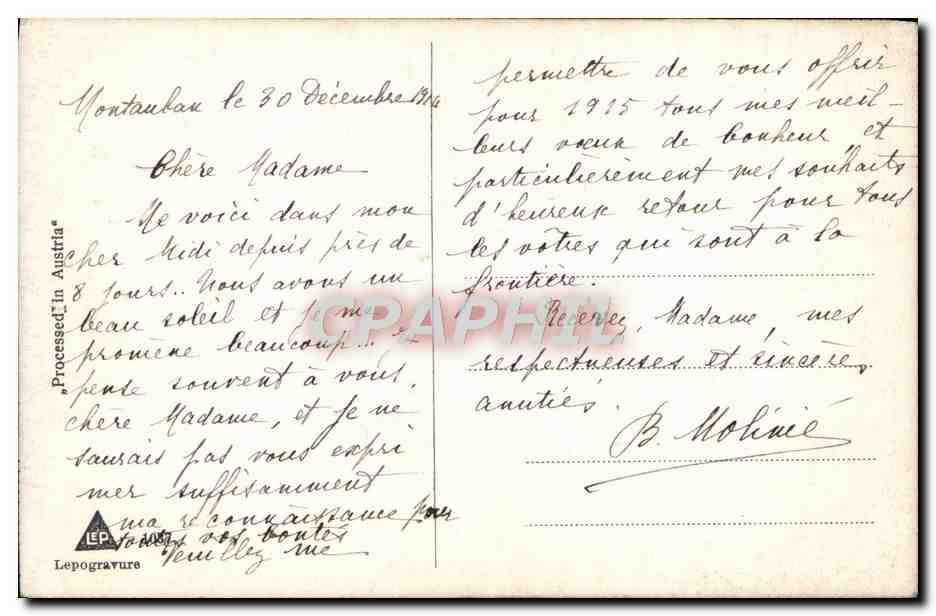 Montauban le 30 Décembre 1914
Chère Madame
Me voici dans mon
cher Midi depuis près de
8 jours.. Nous avons un
beau soleil et je me
promène beaucoup... Je
pense souvent à vous,
chère Madame, et je ne
saurais pas vous expri
mer suffisamment
ma reconnaissance pour
toutes vos bontés
Veuillez me
permettre de vous offrir
pour 1915 tous mes meil-
leurs vœux de bonheur, et
particulièrement mes souhaits
d'heureux retour pour tous
les vôtres qui sont à la
frontière.
Recevez, Madame, mes
respectueuses et sincères
amitiés.
B. Molinié
„Processed in Austria“
LEP 1087
Lepogravure
CPAPHIL